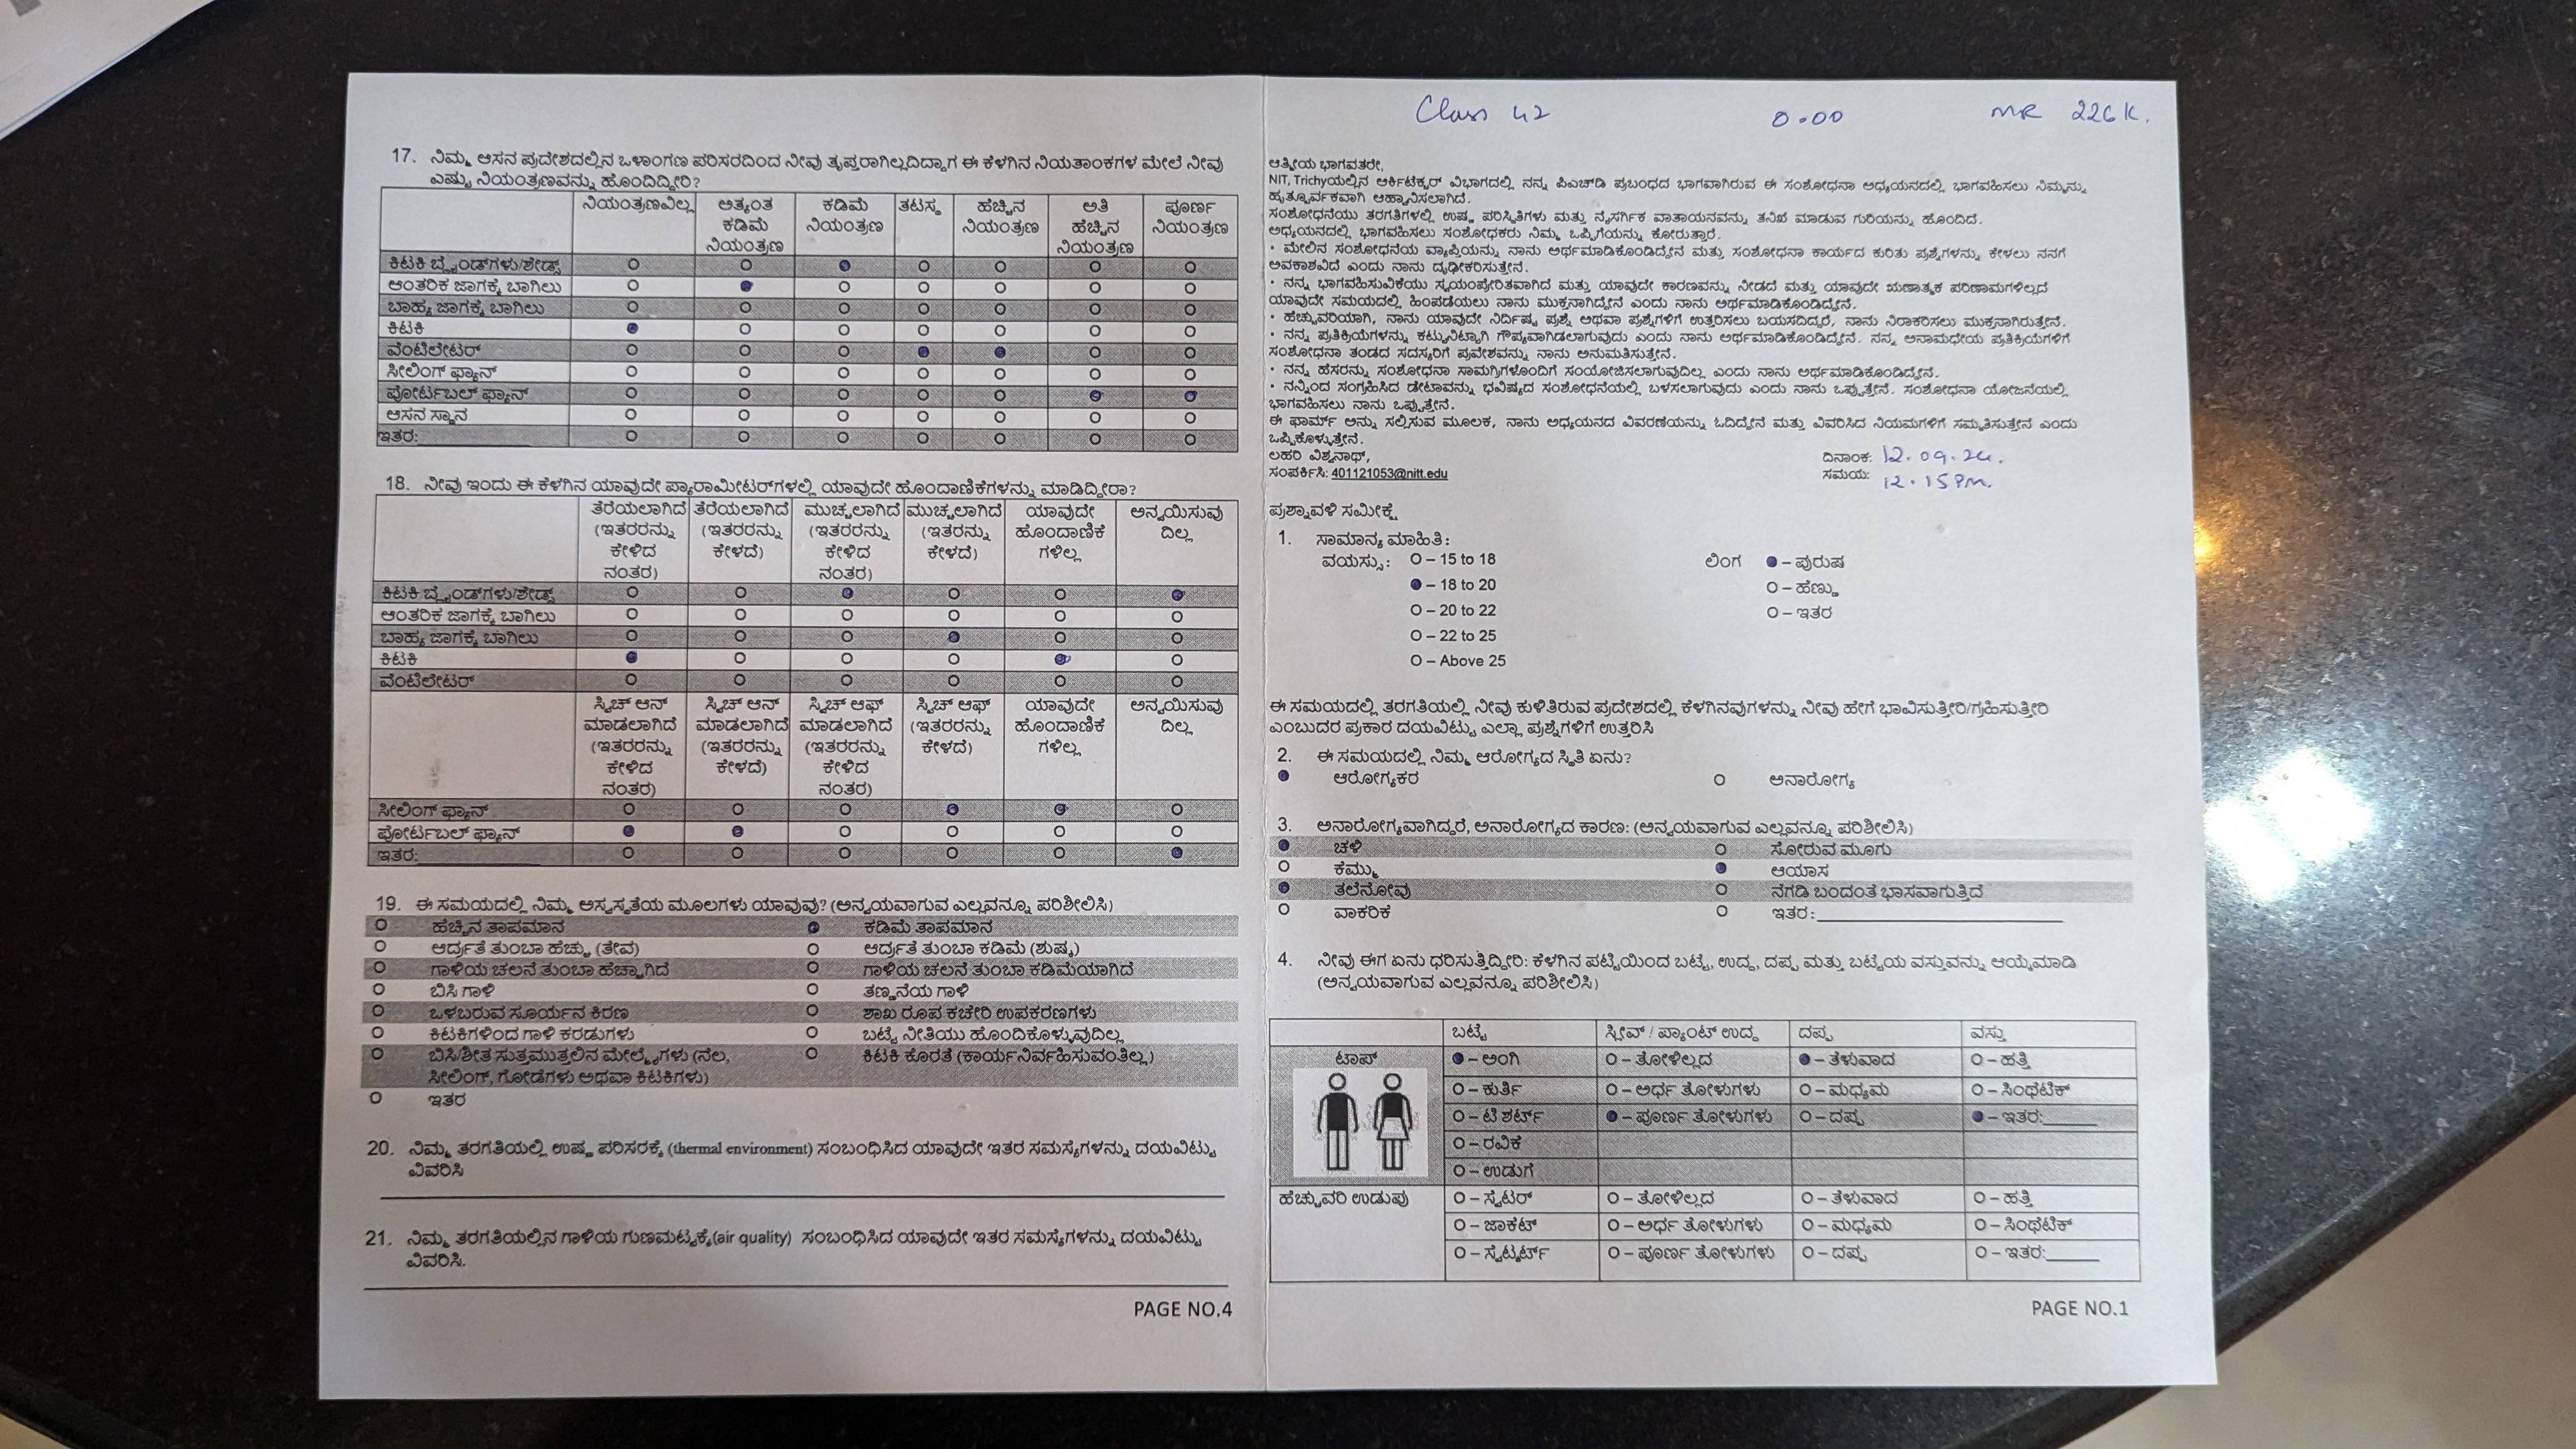 17. ನಿಮ್ಮ ಆಸನ ಪ್ರದೇಶದಲ್ಲಿನ ಒಳಾಂಗಣ ಪರಿಸರದಿಂದ ನೀವು ತೃಪ್ತರಾಗಿಲ್ಲದಿದ್ದಾಗ ಈ ಕೆಳಗಿನ ನಿಯತಾಂಕಗಳ ಮೇಲೆ ನೀವು
ಎಷ್ಟು ನಿಯಂತ್ರಣವನ್ನು ಹೊಂದಿದ್ದೀರಿ?
ನಿಯಂತ್ರಣವಿಲ್ಲ ಅತ್ಯಂತ ಕಡಿಮೆ ನಿಯಂತ್ರಣ ಕಡಿಮೆ ನಿಯಂತ್ರಣ ತಟಸ್ಥ ಹೆಚ್ಚಿನ ನಿಯಂತ್ರಣ ಅತಿ ಹೆಚ್ಚಿನ ನಿಯಂತ್ರಣ ಪೂರ್ಣ ನಿಯಂತ್ರಣ
ಕಿಟಕಿ ಬ್ಲೈಂಡ್‌ಗಳು/ಶೇಡ್ಸ್
ಆಂತರಿಕ ಜಾಗಕ್ಕೆ ಬಾಗಿಲು
ಬಾಹ್ಯ ಜಾಗಕ್ಕೆ ಬಾಗಿಲು
ಕಿಟಕಿ
ವೆಂಟಿಲೇಟರ್
ಸೀಲಿಂಗ್ ಫ್ಯಾನ್
ಪೋರ್ಟಬಲ್ ಫ್ಯಾನ್
ಆಸನ ಸ್ಥಾನ
ಇತರ:
18. ನೀವು ಇಂದು ಈ ಕೆಳಗಿನ ಯಾವುದೇ ಪ್ಯಾರಾಮೀಟರ್‌ಗಳಲ್ಲಿ ಯಾವುದೇ ಹೊಂದಾಣಿಕೆಗಳನ್ನು ಮಾಡಿದ್ದೀರಾ?
ತೆರೆಯಲಾಗಿದೆ (ಇತರರನ್ನು ಕೇಳಿದ ನಂತರ) ತೆರೆಯಲಾಗಿದೆ (ಇತರರನ್ನು ಕೇಳದೆ) ಮುಚ್ಚಲಾಗಿದೆ (ಇತರರನ್ನು ಕೇಳಿದ ನಂತರ) ಮುಚ್ಚಲಾಗಿದೆ (ಇತರರನ್ನು ಕೇಳದೆ) ಯಾವುದೇ ಹೊಂದಾಣಿಕೆ ಗಳಿಲ್ಲ ಅನ್ವಯಿಸುವು ದಿಲ್ಲ
ಕಿಟಕಿ ಬ್ಲೈಂಡ್‌ಗಳು/ಶೇಡ್ಸ್
ಆಂತರಿಕ ಜಾಗಕ್ಕೆ ಬಾಗಿಲು
ಬಾಹ್ಯ ಜಾಗಕ್ಕೆ ಬಾಗಿಲು
ಕಿಟಕಿ
ವೆಂಟಿಲೇಟರ್
ಸ್ವಿಚ್ ಆನ್ ಮಾಡಲಾಗಿದೆ (ಇತರರನ್ನು ಕೇಳಿದ ನಂತರ) ಸ್ವಿಚ್ ಆನ್ ಮಾಡಲಾಗಿದೆ (ಇತರರನ್ನು ಕೇಳದೆ) ಸ್ವಿಚ್ ಆಫ್ ಮಾಡಲಾಗಿದೆ (ಇತರರನ್ನು ಕೇಳಿದ ನಂತರ) ಸ್ವಿಚ್ ಆಫ್ (ಇತರರನ್ನು ಕೇಳದೆ) ಯಾವುದೇ ಹೊಂದಾಣಿಕೆ ಗಳಿಲ್ಲ ಅನ್ವಯಿಸುವು ದಿಲ್ಲ
ಸೀಲಿಂಗ್ ಫ್ಯಾನ್
ಪೋರ್ಟಬಲ್ ಫ್ಯಾನ್
ಇತರ:
19. ಈ ಸಮಯದಲ್ಲಿ ನಿಮ್ಮ ಅಸ್ವಸ್ಥತೆಯ ಮೂಲಗಳು ಯಾವುವು? (ಅನ್ವಯವಾಗುವ ಎಲ್ಲವನ್ನೂ ಪರಿಶೀಲಿಸಿ)
ಹೆಚ್ಚಿನ ತಾಪಮಾನ ಕಡಿಮೆ ತಾಪಮಾನ
ಆರ್ದ್ರತೆ ತುಂಬಾ ಹೆಚ್ಚು (ತೇವ) ಆರ್ದ್ರತೆ ತುಂಬಾ ಕಡಿಮೆ (ಶುಷ್ಕ)
ಗಾಳಿಯ ಚಲನೆ ತುಂಬಾ ಹೆಚ್ಚಾಗಿದೆ ಗಾಳಿಯ ಚಲನೆ ತುಂಬಾ ಕಡಿಮೆಯಾಗಿದೆ
ಬಿಸಿ ಗಾಳಿ ತಣ್ಣನೆಯ ಗಾಳಿ
ಒಳಬರುವ ಸೂರ್ಯನ ಕಿರಣ ಶಾಖ ರೂಪ ಕಚೇರಿ ಉಪಕರಣಗಳು
ಕಿಟಕಿಗಳಿಂದ ಗಾಳಿ ಕರಡುಗಳು ಬಟ್ಟೆ ನೀತಿಯು ಹೊಂದಿಕೊಳ್ಳುವುದಿಲ್ಲ
ಬಿಸಿ/ಶೀತ ಸುತ್ತಮುತ್ತಲಿನ ಮೇಲ್ಮೈಗಳು (ನೆಲ, ಕಿಟಕಿ ಕೊರತೆ (ಕಾರ್ಯನಿರ್ವಹಿಸುವಂತಿಲ್ಲ)
ಸೀಲಿಂಗ್, ಗೋಡೆಗಳು ಅಥವಾ ಕಿಟಕಿಗಳು)
ಇತರ
20. ನಿಮ್ಮ ತರಗತಿಯಲ್ಲಿ ಉಷ್ಣ ಪರಿಸರಕ್ಕೆ (thermal environment) ಸಂಬಂಧಿಸಿದ ಯಾವುದೇ ಇತರ ಸಮಸ್ಯೆಗಳನ್ನು ದಯವಿಟ್ಟು
ವಿವರಿಸಿ
21. ನಿಮ್ಮ ತರಗತಿಯಲ್ಲಿನ ಗಾಳಿಯ ಗುಣಮಟ್ಟಕ್ಕೆ(air quality) ಸಂಬಂಧಿಸಿದ ಯಾವುದೇ ಇತರ ಸಮಸ್ಯೆಗಳನ್ನು ದಯವಿಟ್ಟು
ವಿವರಿಸಿ.
PAGE NO.4
Class 42 0.00 MR 226K.
ಆತ್ಮೀಯ ಭಾಗವತರೇ,
NIT, Trichyಯಲ್ಲಿನ ಆರ್ಕಿಟೆಕ್ಚರ್ ವಿಭಾಗದಲ್ಲಿ ನನ್ನ ಪಿಎಚ್‌ಡಿ ಪ್ರಬಂಧದ ಭಾಗವಾಗಿರುವ ಈ ಸಂಶೋಧನಾ ಅಧ್ಯಯನದಲ್ಲಿ ಭಾಗವಹಿಸಲು ನಿಮ್ಮನ್ನು
ಹೃತ್ಪೂರ್ವಕವಾಗಿ ಆಹ್ವಾನಿಸಲಾಗಿದೆ.
ಸಂಶೋಧನೆಯು ತರಗತಿಗಳಲ್ಲಿ ಉಷ್ಣ ಪರಿಸ್ಥಿತಿಗಳು ಮತ್ತು ನೈಸರ್ಗಿಕ ವಾತಾಯನವನ್ನು ತನಿಖೆ ಮಾಡುವ ಗುರಿಯನ್ನು ಹೊಂದಿದೆ.
ಅಧ್ಯಯನದಲ್ಲಿ ಭಾಗವಹಿಸಲು ಸಂಶೋಧಕರು ನಿಮ್ಮ ಒಪ್ಪಿಗೆಯನ್ನು ಕೋರುತ್ತಾರೆ.
• ಮೇಲಿನ ಸಂಶೋಧನೆಯ ವ್ಯಾಪ್ತಿಯನ್ನು ನಾನು ಅರ್ಥಮಾಡಿಕೊಂಡಿದ್ದೇನೆ ಮತ್ತು ಸಂಶೋಧನಾ ಕಾರ್ಯದ ಕುರಿತು ಪ್ರಶ್ನೆಗಳನ್ನು ಕೇಳಲು ನನಗೆ
ಅವಕಾಶವಿದೆ ಎಂದು ನಾನು ದೃಢೀಕರಿಸುತ್ತೇನೆ.
• ನನ್ನ ಭಾಗವಹಿಸುವಿಕೆಯು ಸ್ವಯಂಪ್ರೇರಿತವಾಗಿದೆ ಮತ್ತು ಯಾವುದೇ ಕಾರಣವನ್ನು ನೀಡದೆ ಮತ್ತು ಯಾವುದೇ ಋಣಾತ್ಮಕ ಪರಿಣಾಮಗಳಿಲ್ಲದೆ
ಯಾವುದೇ ಸಮಯದಲ್ಲಿ ಹಿಂಪಡೆಯಲು ನಾನು ಮುಕ್ತನಾಗಿದ್ದೇನೆ ಎಂದು ನಾನು ಅರ್ಥಮಾಡಿಕೊಂಡಿದ್ದೇನೆ.
• ಹೆಚ್ಚುವರಿಯಾಗಿ, ನಾನು ಯಾವುದೇ ನಿರ್ದಿಷ್ಟ ಪ್ರಶ್ನೆ ಅಥವಾ ಪ್ರಶ್ನೆಗಳಿಗೆ ಉತ್ತರಿಸಲು ಬಯಸದಿದ್ದರೆ, ನಾನು ನಿರಾಕರಿಸಲು ಮುಕ್ತನಾಗಿರುತ್ತೇನೆ.
• ನನ್ನ ಪ್ರತಿಕ್ರಿಯೆಗಳನ್ನು ಕಟ್ಟುನಿಟ್ಟಾಗಿ ಗೌಪ್ಯವಾಗಿಡಲಾಗುವುದು ಎಂದು ನಾನು ಅರ್ಥಮಾಡಿಕೊಂಡಿದ್ದೇನೆ. ನನ್ನ ಅನಾಮಧೇಯ ಪ್ರತಿಕ್ರಿಯೆಗಳಿಗೆ
ಸಂಶೋಧನಾ ತಂಡದ ಸದಸ್ಯರಿಗೆ ಪ್ರವೇಶವನ್ನು ನಾನು ಅನುಮತಿಸುತ್ತೇನೆ.
• ನನ್ನ ಹೆಸರನ್ನು ಸಂಶೋಧನಾ ಸಾಮಗ್ರಿಗಳೊಂದಿಗೆ ಸಂಯೋಜಿಸಲಾಗುವುದಿಲ್ಲ ಎಂದು ನಾನು ಅರ್ಥಮಾಡಿಕೊಂಡಿದ್ದೇನೆ.
• ನನ್ನಿಂದ ಸಂಗ್ರಹಿಸಿದ ಡೇಟಾವನ್ನು ಭವಿಷ್ಯದ ಸಂಶೋಧನೆಯಲ್ಲಿ ಬಳಸಲಾಗುವುದು ಎಂದು ನಾನು ಒಪ್ಪುತ್ತೇನೆ. ಸಂಶೋಧನಾ ಯೋಜನೆಯಲ್ಲಿ
ಭಾಗವಹಿಸಲು ನಾನು ಒಪ್ಪುತ್ತೇನೆ.
ಈ ಫಾರ್ಮ್ ಅನ್ನು ಸಲ್ಲಿಸುವ ಮೂಲಕ, ನಾನು ಅಧ್ಯಯನದ ವಿವರಣೆಯನ್ನು ಓದಿದ್ದೇನೆ ಮತ್ತು ವಿವರಿಸಿದ ನಿಯಮಗಳಿಗೆ ಸಮ್ಮತಿಸುತ್ತೇನೆ ಎಂದು
ಒಪ್ಪಿಕೊಳ್ಳುತ್ತೇನೆ.
ಲಹರಿ ವಿಶ್ವನಾಥ್, ದಿನಾಂಕ: 12.09.24.
ಸಂಪರ್ಕಿಸಿ: 401121053@nitt.edu ಸಮಯ: 12.15PM.
ಪ್ರಶ್ನಾವಳಿ ಸಮೀಕ್ಷೆ
1. ಸಾಮಾನ್ಯ ಮಾಹಿತಿ:
ವಯಸ್ಸು: O – 15 to 18 ಲಿಂಗ – ಪುರುಷ
– 18 to 20 O – ಹೆಣ್ಣು
O – 20 to 22 O – ಇತರ
O – 22 to 25
O – Above 25
ಈ ಸಮಯದಲ್ಲಿ ತರಗತಿಯಲ್ಲಿ ನೀವು ಕುಳಿತಿರುವ ಪ್ರದೇಶದಲ್ಲಿ ಕೆಳಗಿನವುಗಳನ್ನು ನೀವು ಹೇಗೆ ಭಾವಿಸುತ್ತೀರಿ/ಗ್ರಹಿಸುತ್ತೀರಿ
ಎಂಬುದರ ಪ್ರಕಾರ ದಯವಿಟ್ಟು ಎಲ್ಲಾ ಪ್ರಶ್ನೆಗಳಿಗೆ ಉತ್ತರಿಸಿ
2. ಈ ಸಮಯದಲ್ಲಿ ನಿಮ್ಮ ಆರೋಗ್ಯದ ಸ್ಥಿತಿ ಏನು?
ಆರೋಗ್ಯಕರ O ಅನಾರೋಗ್ಯ
3. ಅನಾರೋಗ್ಯವಾಗಿದ್ದರೆ, ಅನಾರೋಗ್ಯದ ಕಾರಣ: (ಅನ್ವಯವಾಗುವ ಎಲ್ಲವನ್ನೂ ಪರಿಶೀಲಿಸಿ)
ಚಳಿ O ಸೋರುವ ಮೂಗು
O ಕೆಮ್ಮು ಆಯಾಸ
ತಲೆನೋವು O ನೆಗಡಿ ಬಂದಂತೆ ಭಾಸವಾಗುತ್ತಿದೆ
O ವಾಕರಿಕೆ O ಇತರ:
4. ನೀವು ಈಗ ಏನು ಧರಿಸುತ್ತಿದ್ದೀರಿ: ಕೆಳಗಿನ ಪಟ್ಟಿಯಿಂದ ಬಟ್ಟೆ, ಉದ್ದ, ದಪ್ಪ ಮತ್ತು ಬಟ್ಟೆಯ ವಸ್ತುವನ್ನು ಆಯ್ಕೆಮಾಡಿ
(ಅನ್ವಯವಾಗುವ ಎಲ್ಲವನ್ನೂ ಪರಿಶೀಲಿಸಿ)
ಬಟ್ಟೆ ಸ್ಲೀವ್ / ಪ್ಯಾಂಟ್ ಉದ್ದ ದಪ್ಪ ವಸ್ತು
ಟಾಪ್ – ಅಂಗಿ O – ತೋಳಿಲ್ಲದ – ತೆಳುವಾದ O – ಹತ್ತಿ
O – ಕುರ್ತಿ O – ಅರ್ಧ ತೋಳುಗಳು O – ಮಧ್ಯಮ O – ಸಿಂಥೆಟಿಕ್
O – ಟಿ ಶರ್ಟ್ – ಪೂರ್ಣ ತೋಳುಗಳು O – ದಪ್ಪ – ಇತರ:
O – ರವಿಕೆ
O – ಉಡುಗೆ
ಹೆಚ್ಚುವರಿ ಉಡುಪು O – ಸ್ವೆಟರ್ O – ತೋಳಿಲ್ಲದ O – ತೆಳುವಾದ O – ಹತ್ತಿ
O – ಜಾಕೆಟ್ O – ಅರ್ಧ ತೋಳುಗಳು O – ಮಧ್ಯಮ O – ಸಿಂಥೆಟಿಕ್
O – ಸ್ವೆಟ್ಶರ್ಟ್ O – ಪೂರ್ಣ ತೋಳುಗಳು O – ದಪ್ಪ O – ಇತರ:
PAGE NO.1